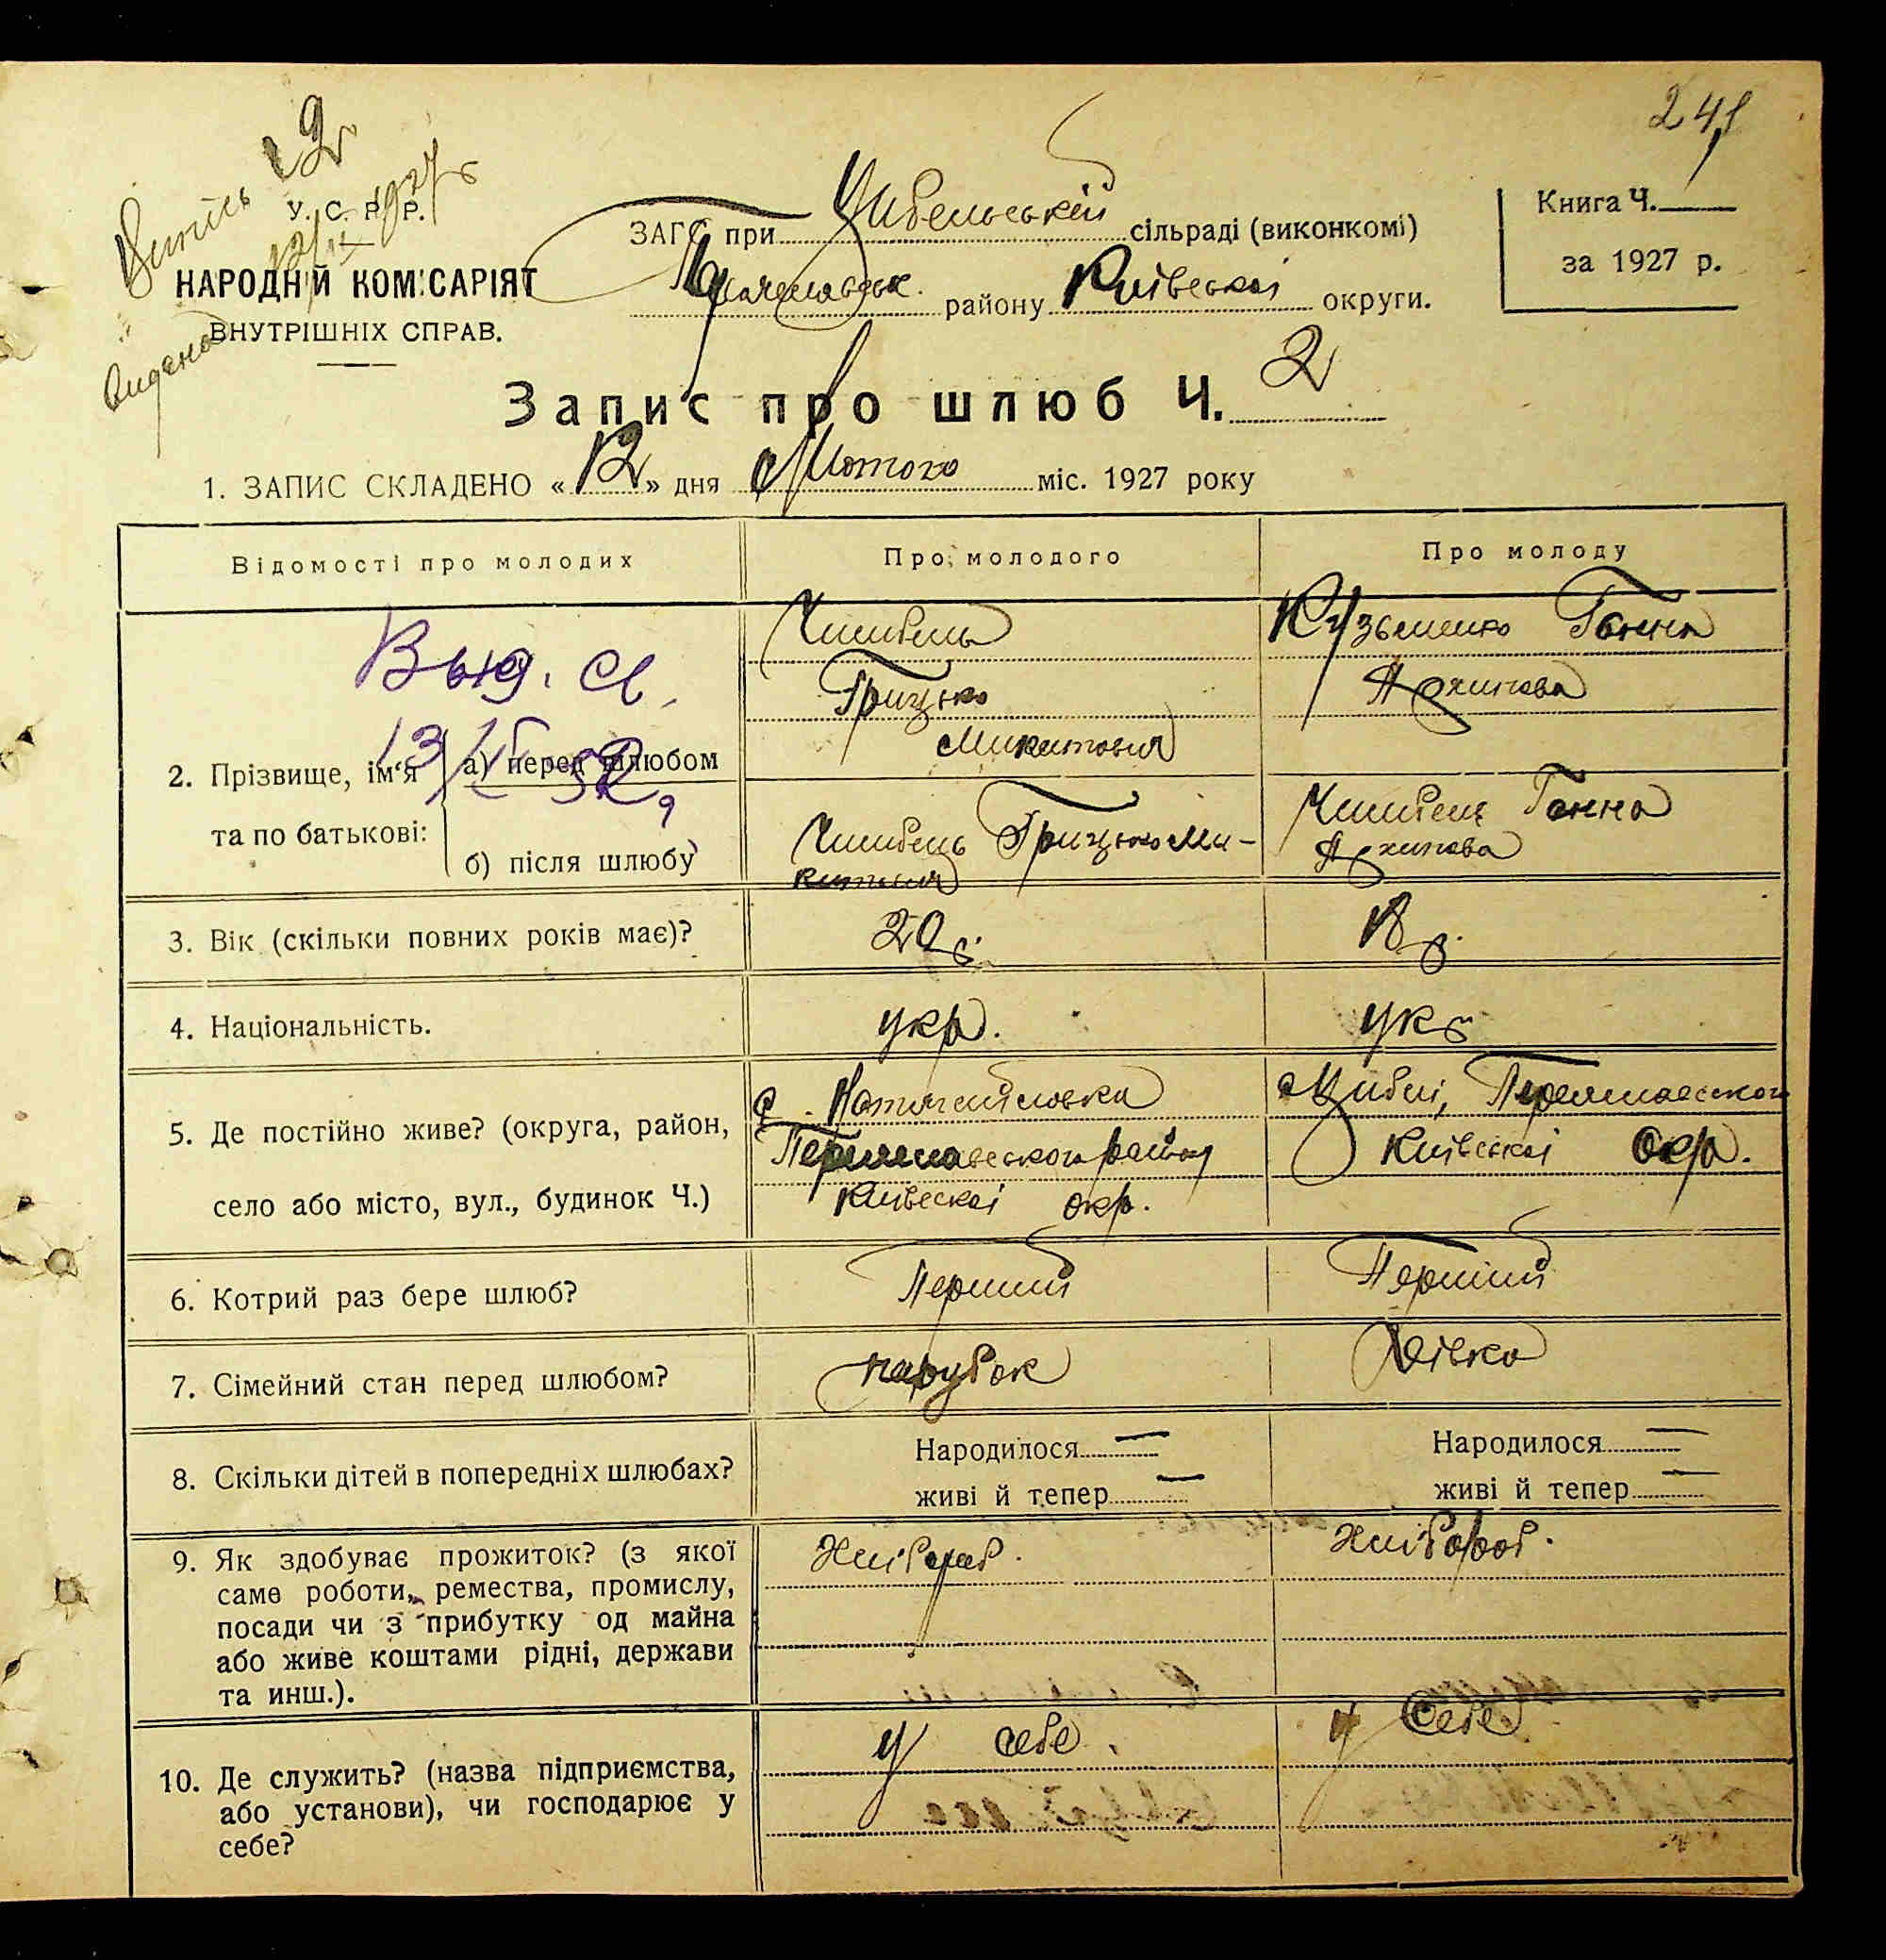 241
Витяг 2
12/IV 1927 р
видано
У. С. Р. Р.
НАРОДНІЙ КОМІСАРІЯТ
ВНУТРІШНІХ СПРАВ.
ЗАГС при Цибельській сільраді (виконкомі)
району Київської округи.
Книга Ч.
за 1927 р.
Запис про шлюб Ч. 2
1. ЗАПИС СКЛАДЕНО «12» дня Лютого міс. 1927 року
Відомості про молодих
Про молодого
Про молоду
Выд. с.
13/ 52
2. Прізвище, ім'я та по батькові:
а) перед шлюбом
Грицько
Микитович
Кузьменко Ганна
Архипова
б) після шлюбу
Грицько Ми-
китович
Ганна
Архипова
3. Вік (скільки повних років має)?
20 р.
18 р.
4. Національність.
укр.
укр
5. Де постійно живе? (округа, район,
село або місто, вул., будинок Ч.)
с.
Переяславського району
Київскої окр.
с Циблі, Переяславського
Київської окр.
6. Котрий раз бере шлюб?
Перший
Перший
7. Сімейний стан перед шлюбом?
парубок
Дівка
8. Скільки дітей в попередніх шлюбах?
Народилося —
живі й тепер —
Народилося —
живі й тепер —
9. Як здобуває прожиток? (з якої
саме роботи, ремества, промислу,
посади чи з прибутку од майна
або живе коштами рідні, держави
та инш.).
Хлібороб.
Хлібороб.
10. Де служить? (назва підприємства,
або установи), чи господарює у
себе?
у себе.
у себе